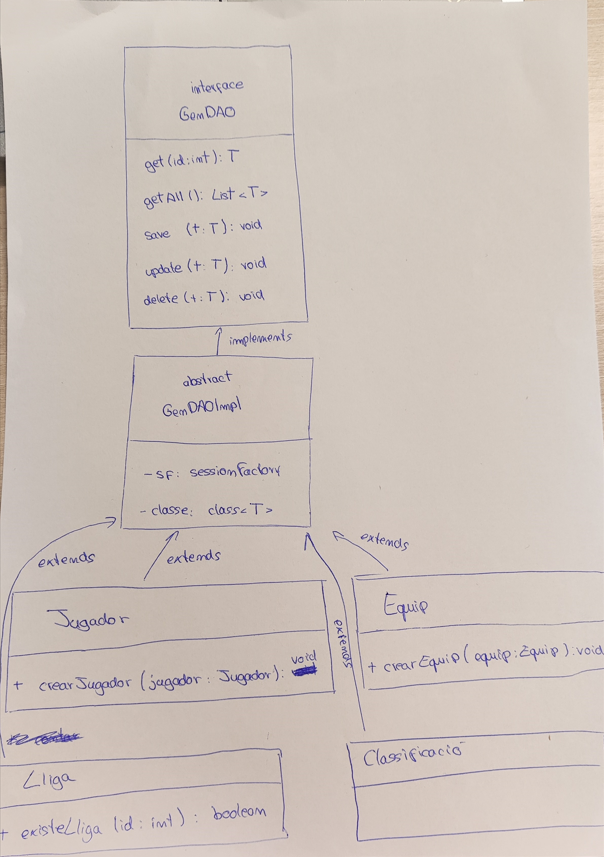 interface
GenDAO
get(id:int): T
getAll(): List<T>
save (t:T): void
update(t:T): void
delete(t:T): void
implements
abstract
GenDAOImpl
- SF: sessionFactory
- classe: class<T>
extends
extends
extends
extends
Jugador
+ crearJugador (jugador: Jugador): void
Equip
+ crearEquip(equip:Equip):void
Lliga
+ existeLliga (id:int): boolean
Classificació